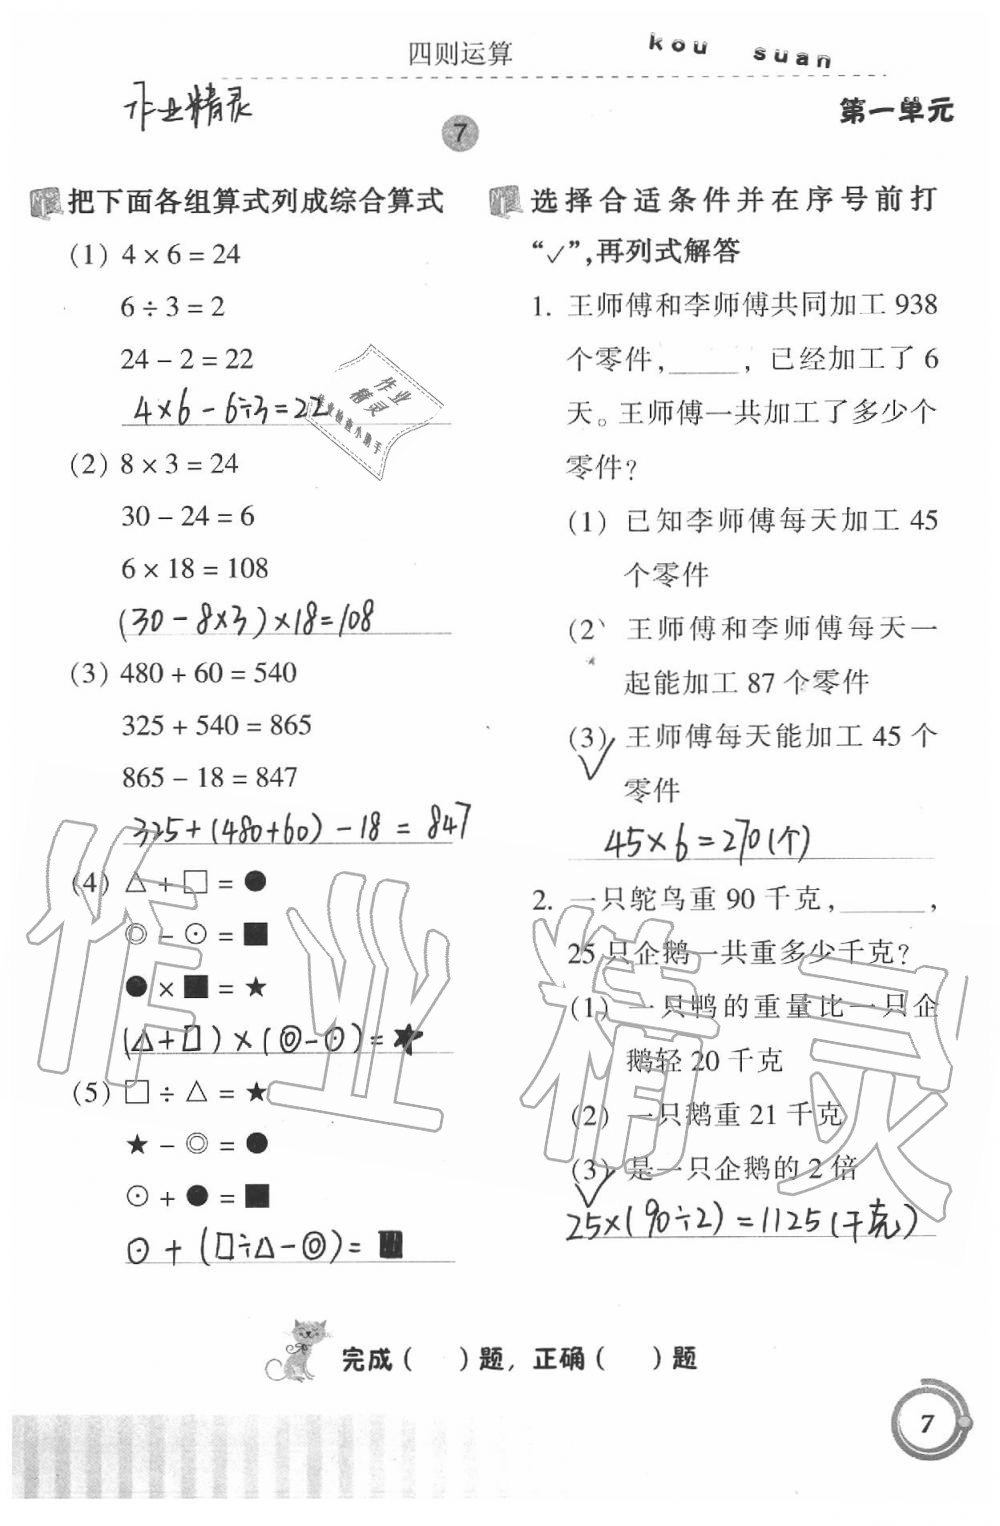 四则运算
kou suan
作业精灵
第一单元
7
把下面各组算式列成综合算式
(1) 4 × 6 = 24
6 ÷ 3 = 2
24 − 2 = 22
4×6 − 6÷3 = 22
(2) 8 × 3 = 24
30 − 24 = 6
6 × 18 = 108
(30 − 8×3) × 18 = 108
(3) 480 + 60 = 540
325 + 540 = 865
865 − 18 = 847
325 + (480+60) − 18 = 847
(4) △ + □ = ●
◎ − ⊙ = ■
● × ■ = ★
(△+□) × (◎−⊙) = ★
(5) □ ÷ △ = ★
★ − ◎ = ●
⊙ + ● = ■
⊙ + (□÷△−◎) = ■
选择合适条件并在序号前打
“✓”,再列式解答
1. 王师傅和李师傅共同加工 938
个零件,_____, 已经加工了 6
天。王师傅一共加工了多少个
零件?
(1) 已知李师傅每天加工 45
个零件
(2) 王师傅和李师傅每天一
起能加工 87 个零件
(3) 王师傅每天能加工 45 个
✓
零件
45×6 = 270(个)
2. 一只鸵鸟重 90 千克,______,
25 只企鹅一共重多少千克?
(1) 一只鸭的重量比一只企
鹅轻 20 千克
(2) 一只鹅重 21 千克
(3) 是一只企鹅的 2 倍
✓
25×(90÷2) = 1125(千克)
作业
精灵
作业检查小助手
作业精灵
完成( )题, 正确( )题
7